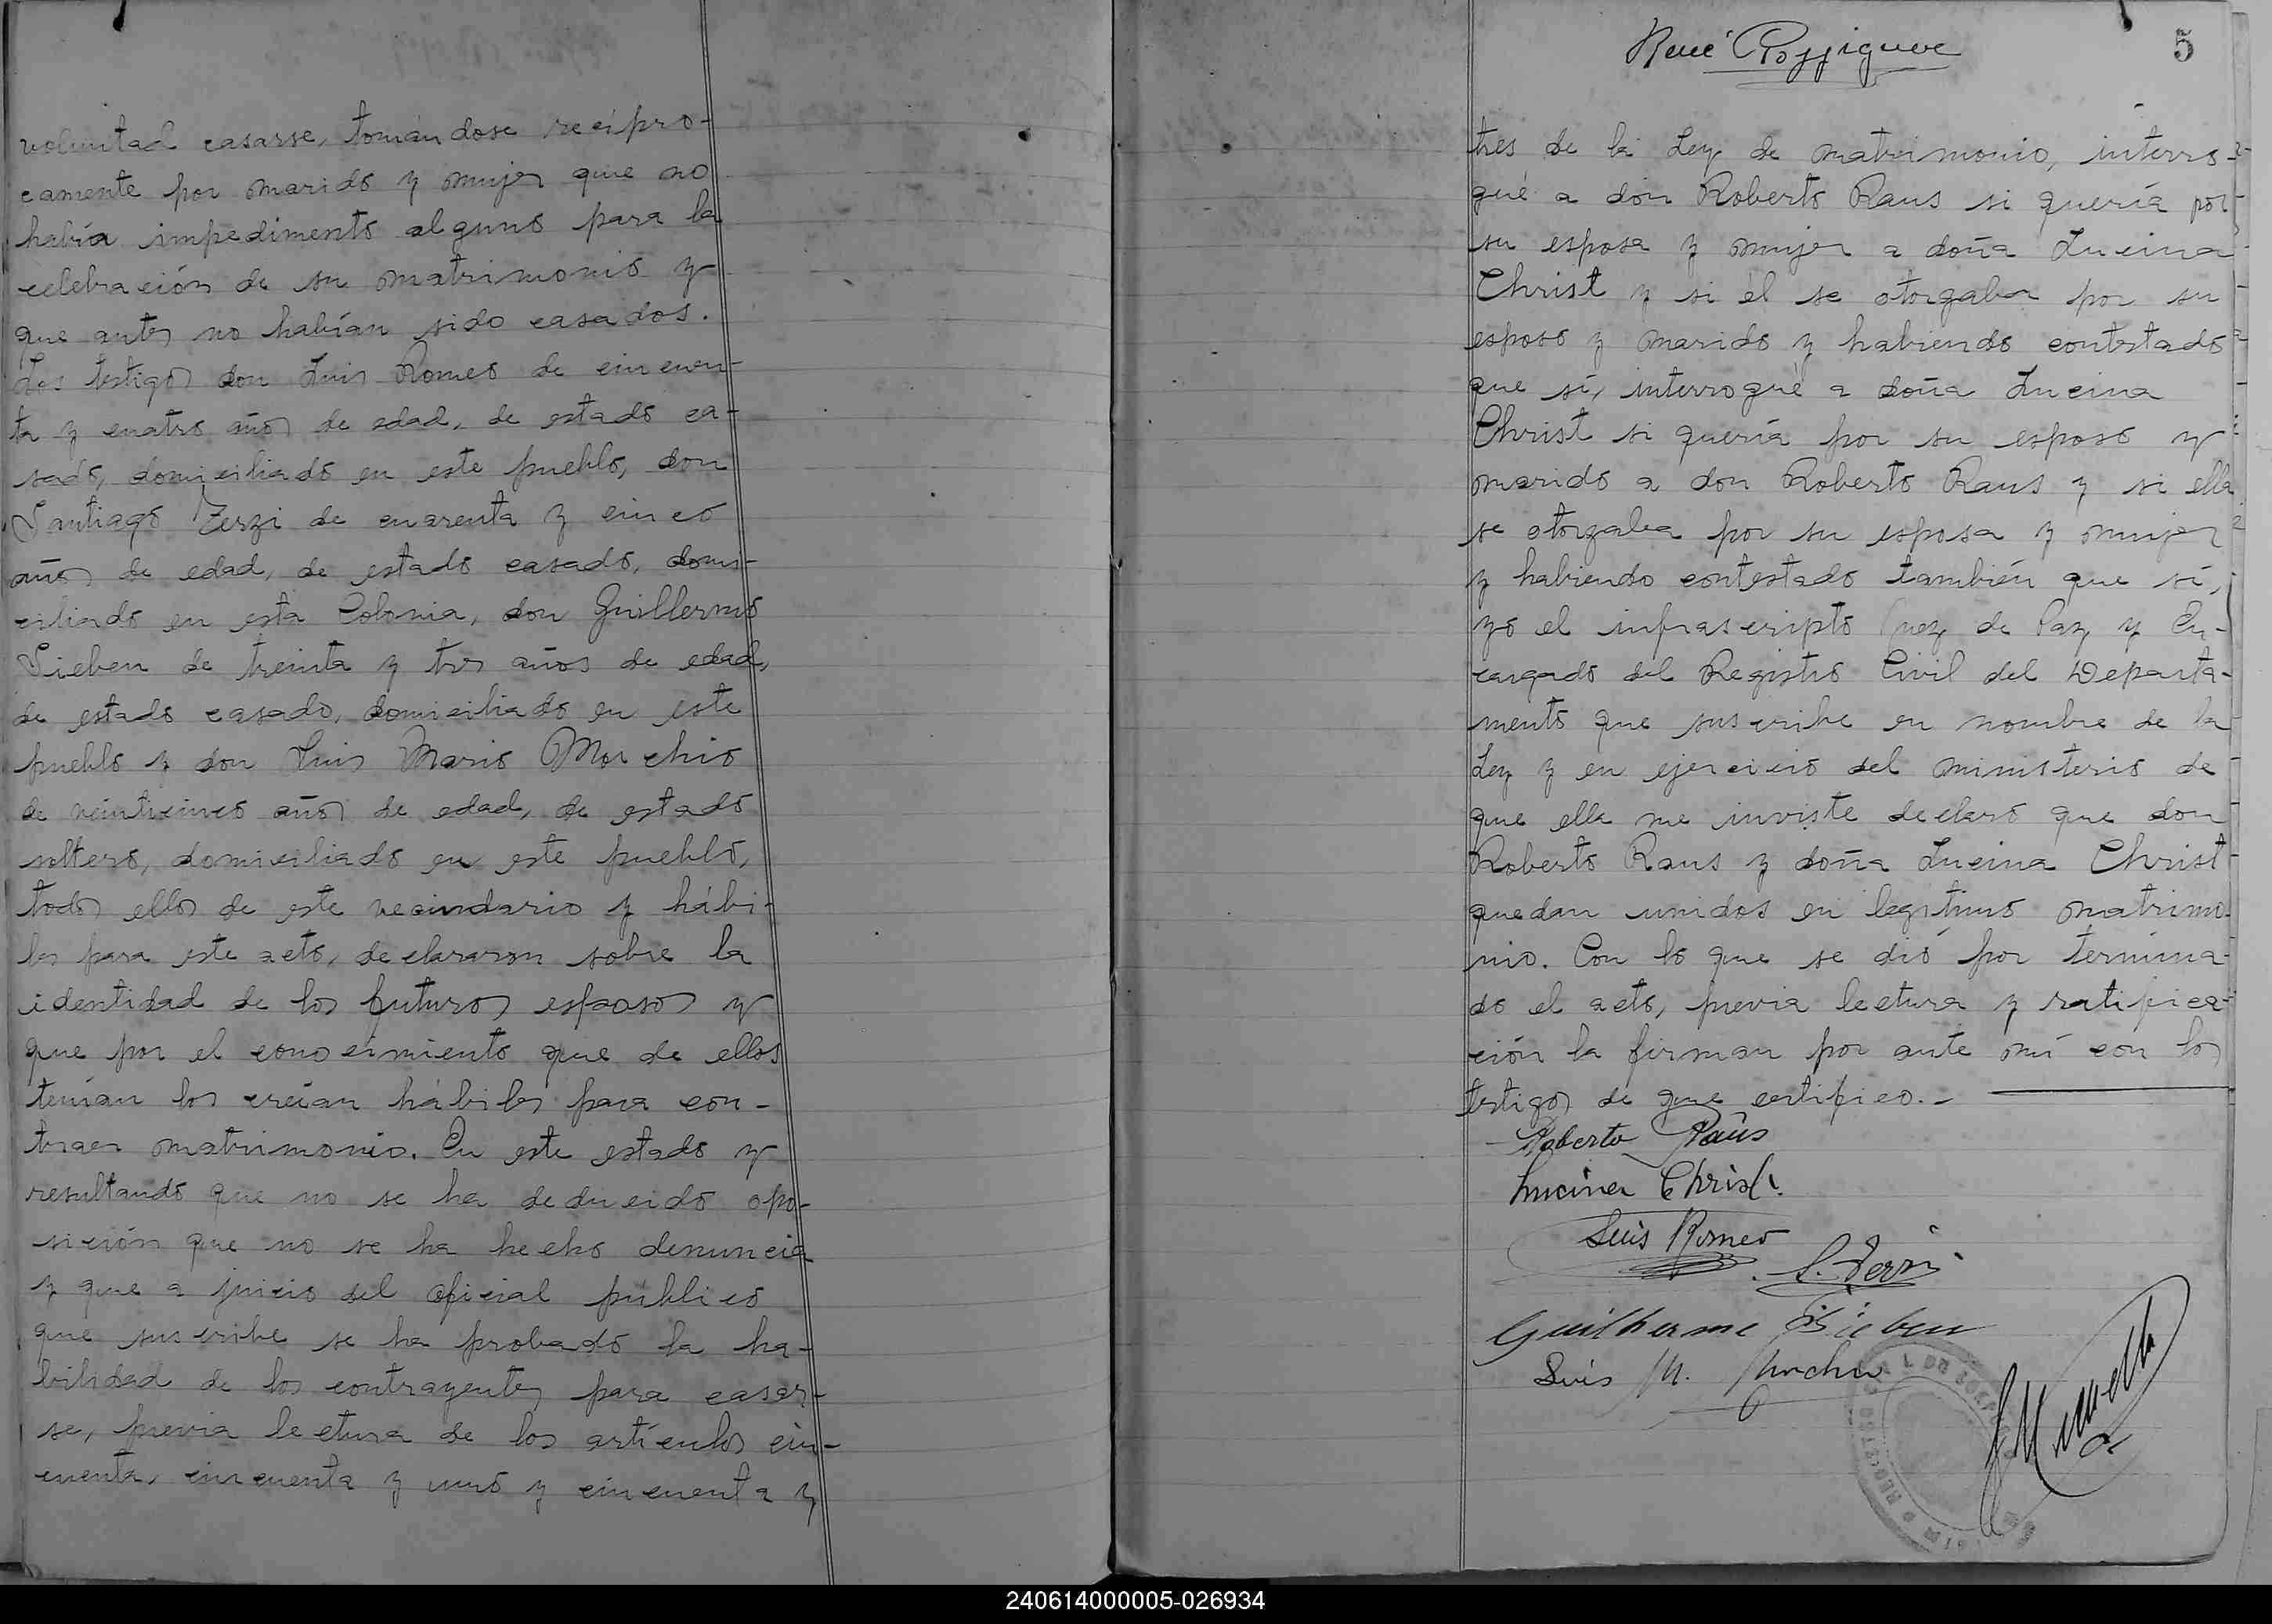 voluntad casarse, tomándose recípro-
camente por marido y mujer que no
había impedimento alguno para la
celebración de su matrimonio y
que antes no habían sido casados.
Los testigos don Luis Romeo de cincuen-
ta y cuatro años de edad, de estado ca-
sado, domiciliado en este pueblo, don
Santiago Zerzi de cuarenta y cinco
años de edad, de estado casado, domi-
ciliado en esta Colonia, don Guillermo
Sieben de treinta y tres años de edad,
de estado casado, domiciliado en este
pueblo y don Luis Mario Morchio
de veinticinco años de edad, de estado
soltero, domiciliado en este pueblo,
todos ellos de este vecindario y hábi-
les para este acto, declararon sobre la
identidad de los futuros esposos y
que por el conocimiento que de ellos
tenían los creían hábiles para con-
traer matrimonio. En este estado y
resultando que no se ha deducido opo-
sición que no se ha hecho denuncia
y que a juicio del oficial público
que suscribe se ha probado la ha-
bilidad de los contrayentes para casar-
se, previa lectura de los artículos cin-
cuenta, cincuenta y uno y cincuenta y
René
5
tres de la Ley de matrimonio, interro-
gué a don Roberto Raus si quería por
su esposa y mujer a doña Lucina
Christ y si él se otorgaba por su
esposo y marido y habiendo contestado
que sí, interrogué a doña Lucina
Christ si quería por su esposo y
marido a don Roberto Raus y si ella
se otorgaba por su esposa y mujer
y habiendo contestado también que sí,
yo el infrascripto Juez de Paz y En-
cargado del Registro Civil del Departa-
mento que suscribe en nombre de la
Ley y en ejercicio del ministerio de
que ella me inviste declaro que don
Roberto Raus y doña Lucina Christ
quedan unidos en legítimo matrimo-
nio. Con lo que se dió por termina-
do el acto, previa lectura y ratifica-
ción la firman por ante mí con los
testigos de que certifico.-
Roberto Raüs
Lucina Christ.
Luis Romeo
Guilherme Sieben
Luis M.
240614000005-026934